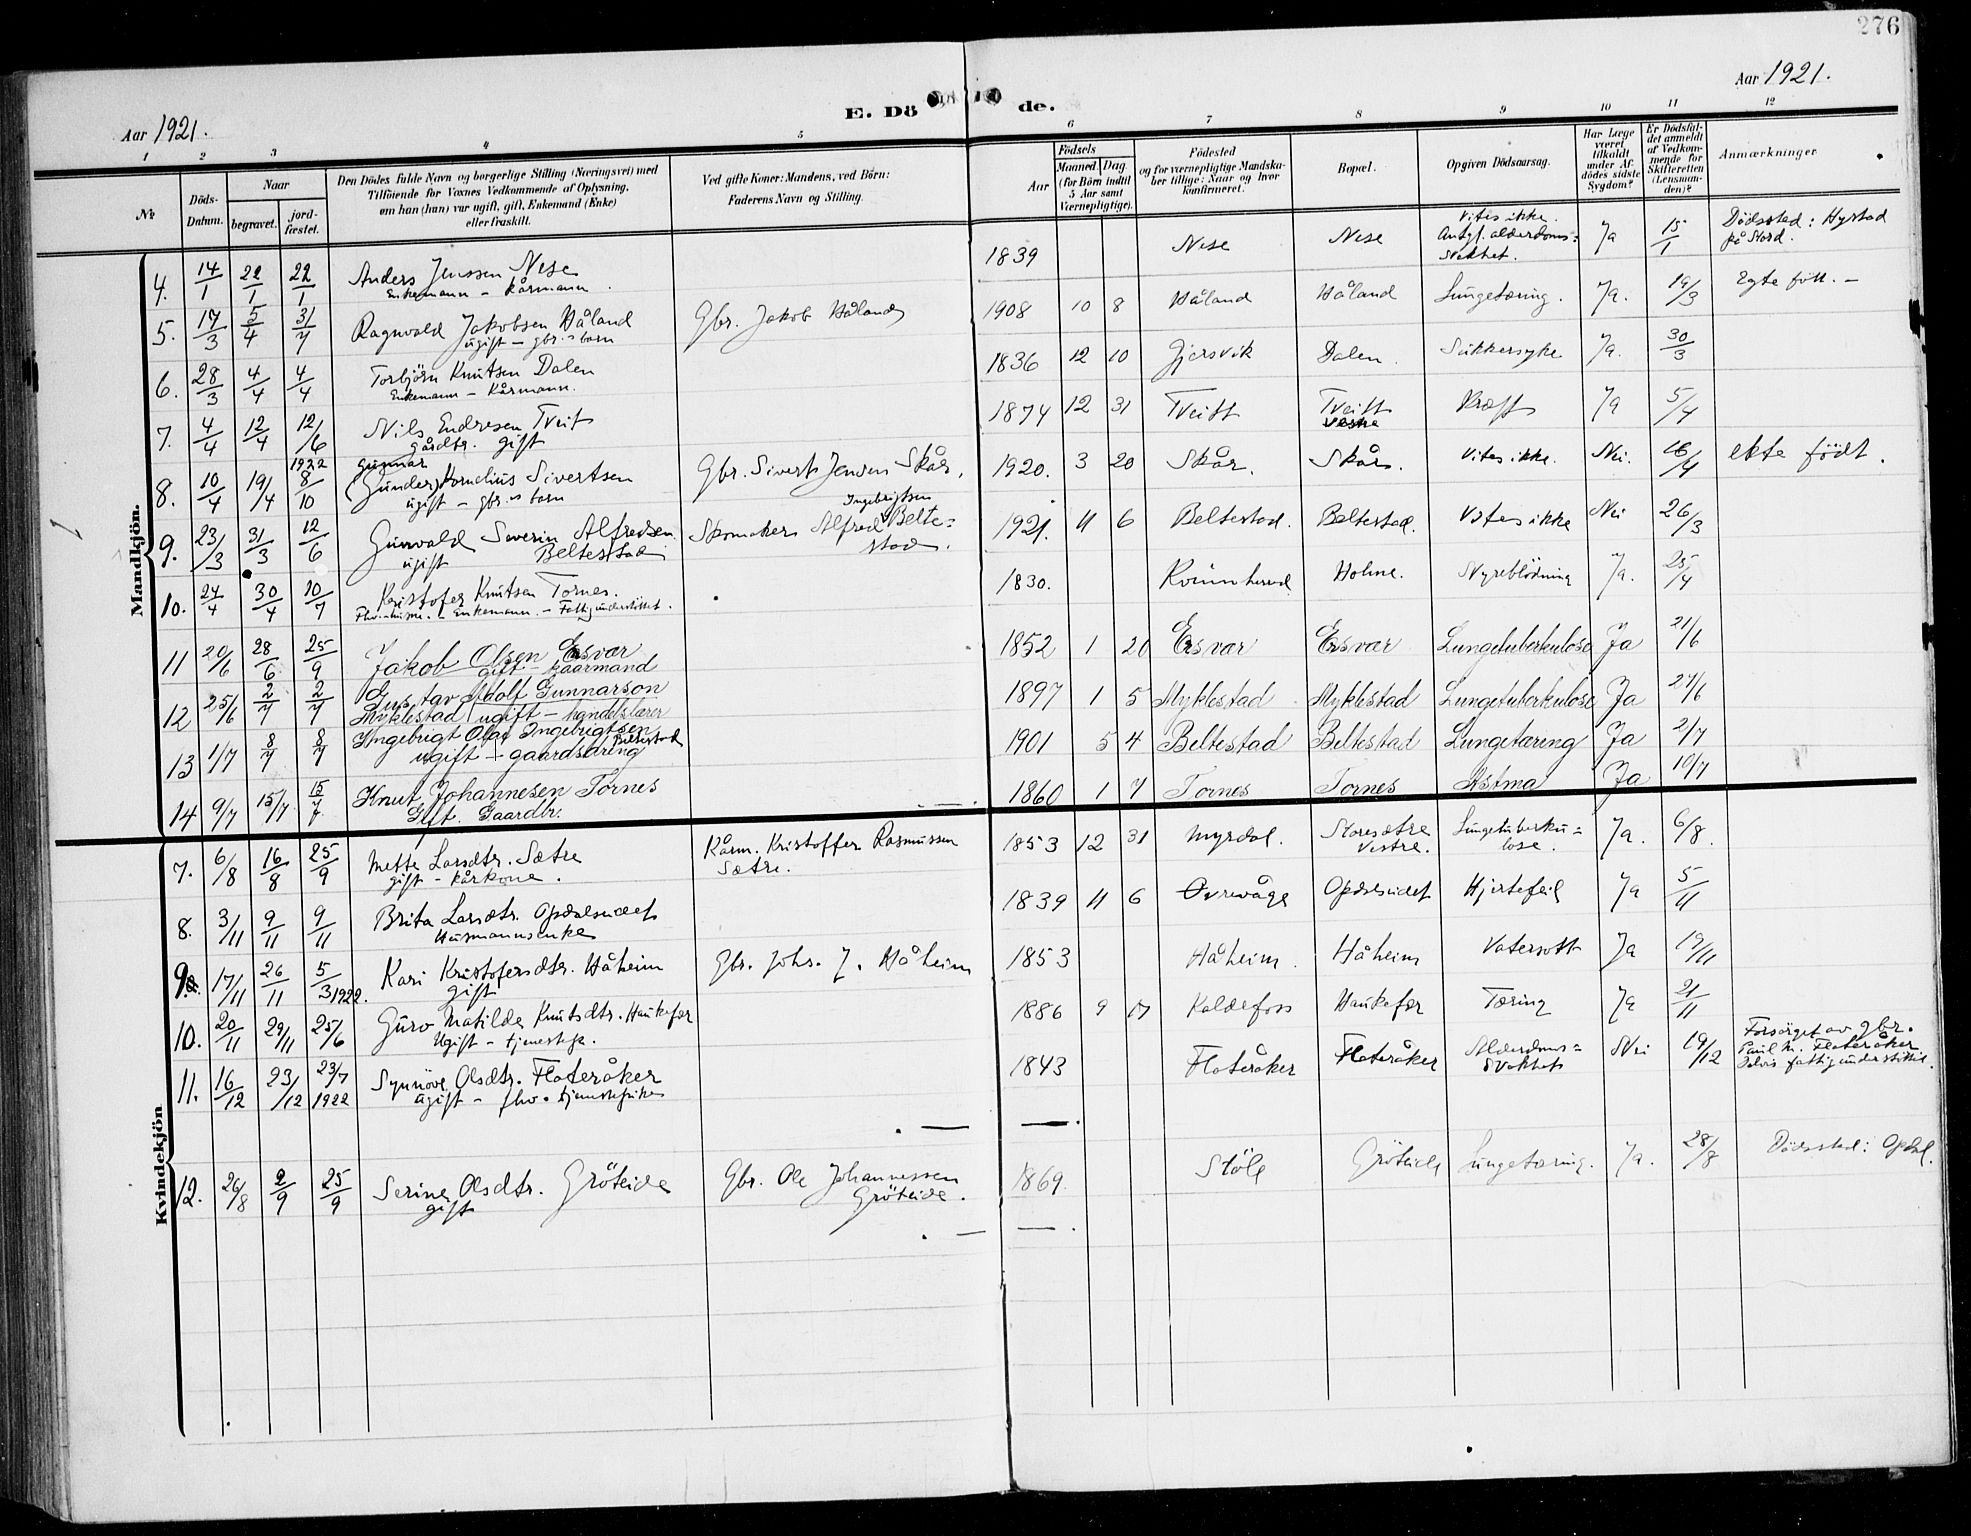 276
Aar 1921.
E. Dö de.
Aar 1921.
1 2 3 4 5 6 7 8 9 10 11 12
№
Döds-Datum.
Naar
begravet.
jord-fæstet.
Den Dödes fulde Navn og borgerlige Stilling (Næringsvei) med
Tilföiende for Voxnes Vedkommende af Oplysning,
om han (hun) var ugift, gift, Enkemand (Enke)
eller fraskilt.
Ved gifte Koner: Mandens, ved Börn:
Faderens Navn og Stilling.
Födsels
Aar
Maaned Dag
(for Börn indtil
5 Aar samt
Værnepligtige).
Födested
og for værnepligtige Mandska-
ber tillige: Naar og hvor
konfirmeret.
Bopæl.
Opgiven Dödsaarsag.
Har Læge
været
tilkaldt
under Af-
dödes sidste
Sygdom?
Er Dödsfal-
det anmeldt
af Vedkom-
mende for
Skifteretten
(Lensman-
den)?
Anmærkninger
Mandkjön.
4. 14/1 22/1 22/1 Anders Jenssen Nese 1839 Nese Nese Vites ikke. Antgl. alderdoms= svekhet. Ja 15/1 Dödssted: Hystad på Stord.
Enkemann – kårmann.
5. 17/3 5/4 31/7 Ragnvald Jakobsen Håland Gbr. Jakob Håland 1908 10 8 Håland Håland Lungetæring. Ja. 19/3 Egte född. –
ugift – gbr.s barn
6. 28/3 4/4 4/4 Torbjörn Knutsen Dalen 1836 12 10 Gjersvik Dalen. Sukkersyke Ja. 30/3
Enkemann – Kårmann.
7. 4/4 12/4 12/6 Nils Endresen Tveit 1874 12 31 Tveitt Tveitt Vestre Kræft Ja 5/4
gårdbr. gift
8. 10/4 19/4 1922 8/10 Gunnar (Gunder) Kornelius Sivertsen Gbr. Sivert Jensen Skår. 1920. 3 20 Skår. Skår. Vites ikke. Nei. 16/4 ekte födt.
ugift – gbr.s barn
9. 23/3 31/3 12/6 Gunvald Severin Alfredsen Skomaker Alfred Ingebrigtsen Belte= stad. 1921. 11 6 Beltestad. Beltestad. Vites ikke Nei 26/3
ugift Beltestad
10. 24/4 30/4 10/7 Kristofer Knutsen Tornes. 1830. Kvinnherred Holme. Nyreblödning Ja. 25/4
Fhv. husm. – Enkemann. – Fattigunderstöttet.
11 20/6 28/6 25/9 Jakob Olsen Ersvær 1852 1 20 Ersvær Ersvær Lungetuberkulose Ja 21/6
gift – kaarmand
12 25/6 2/7 2/7 Gustav Adolf Gunnarson 1897 1 5 Myklestad Myklestad Lungetuberkulose Ja 27/6
Myklestad ugift – handelslærer
13 1/7 8/7 8/7 Ingebrigt Olai Ingebrigtsen Beltestad 1901 5 4 Beltestad Beltestad Lungetæring Ja 2/7
ugift – gaardsdreng
14 9/7 15/7 15/7. Knut Johannesen Tornes 1860 1 7 Tornes Tornes Astma Ja 19/7
Gift. Gaardbr.
Kvindekjön
7. 6/8 16/8 25/9 Mette Larsdtr. Sætre Kårm. Kristoffer Rasmussen Sætre. 1853 12 31 Myrdal. Storesætre Vestre. Lungetuberku= lose. Ja. 6/8.
gift – kårkone.
8. 3/11 9/11 9/11 Brita Larsdtr. Opdalseidet 1839 11 6 Övrevåge Opdalseidet Hjertefeil Ja 5/11
Husmannsenke
9. 17/11 26/11 5/3 1922. Kari Kristofersdtr. Håheim Gbr. Johs. J. Håheim 1853 Håheim. Håheim Vatersott Ja 19/11
gift
10. 20/11 29/11 25/6 Guro Matilde Knutsdtr. Haukefær 1886 9 17 Koldefoss Haukefær Tæring Ja 21/11
Ugift – tjenestepk.
11. 16/12 23/12 23/7 1922 Synnöve Olsdtr. Flateråker 1843 Flateråker Flateråker Alderdoms= svekhet Nei 19/12 Forsörget av gbr. Paul M. Flateråker. Delvis fattigunderstöttet.
ugift – fhv. tjenestepike
12. 26/8 2/9 25/9 Serina Olsdtr. Gröteide Gbr. Ole Johannessen Gröteide. 1869. Stöle Gröteide Lungetæring. Ja. 28/8 Dödsstad: Opdal.
gift